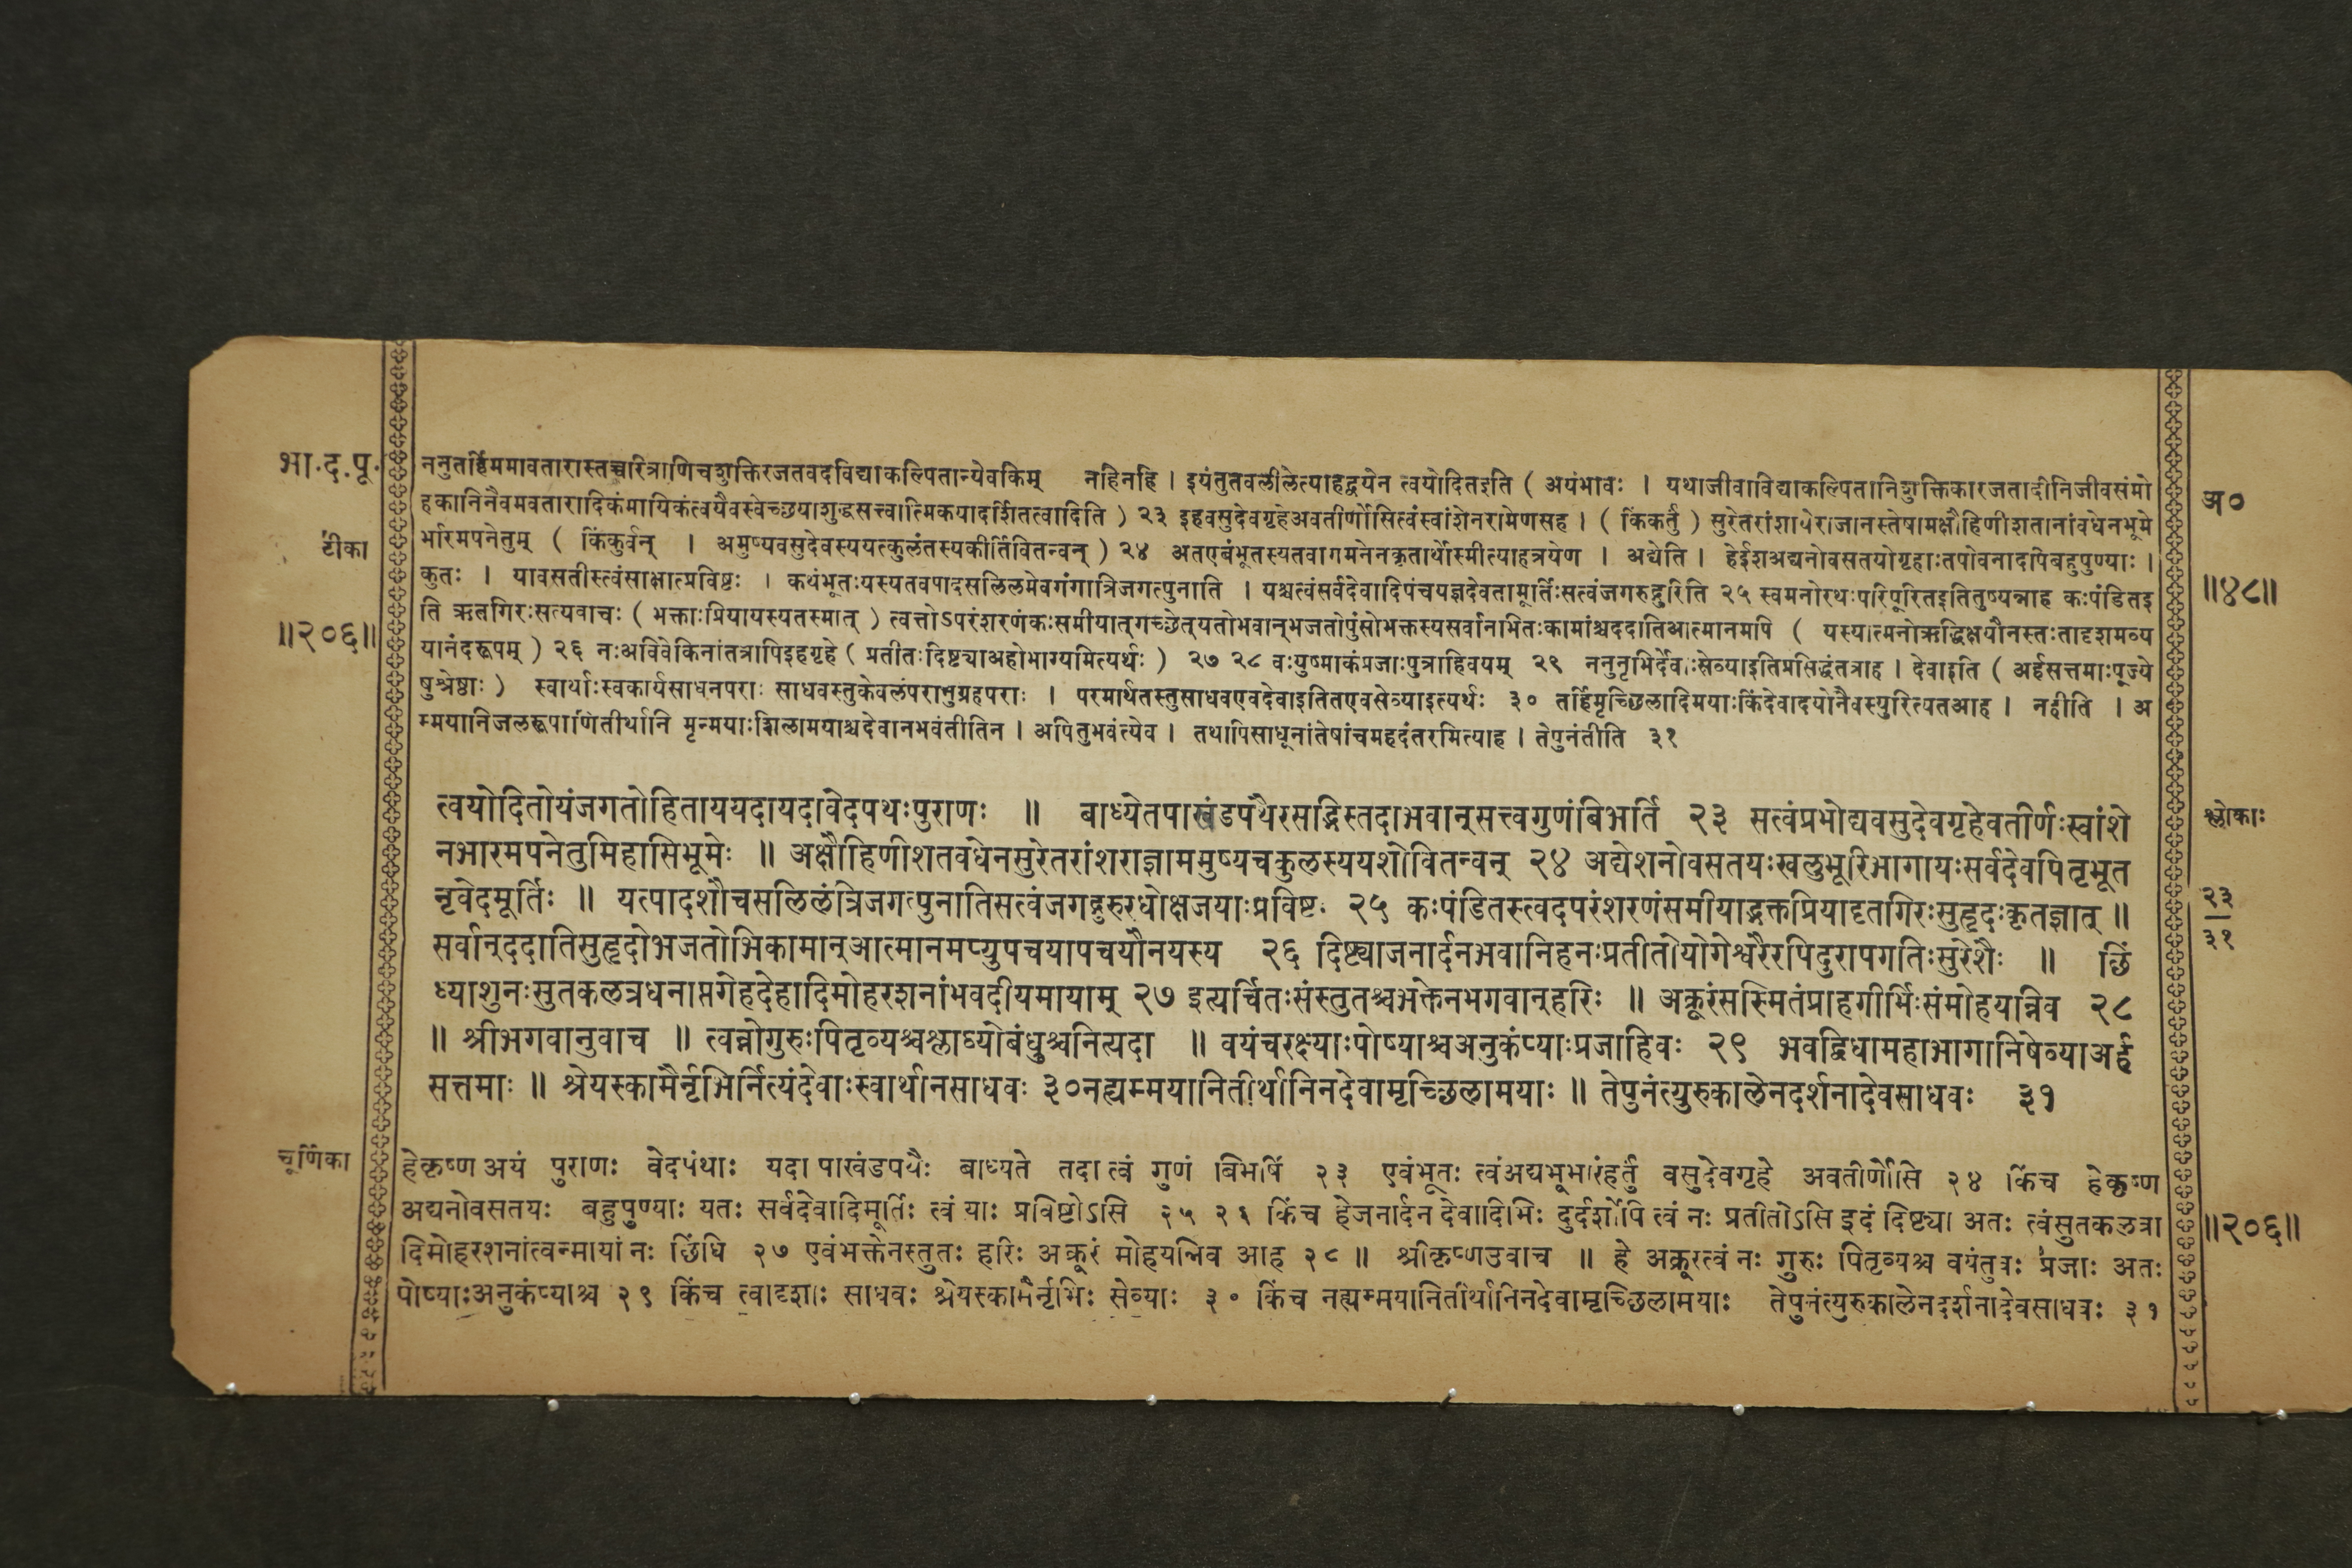 भा.द.पू.
ननुतर्हिममावतारास्तच्चरित्राणिचशुक्तिरजतवदविद्याकल्पितान्येवकिम् नहिनहि । इयंतुतवलीलेत्याहद्वयेन त्वयोदितइति ( अयंभावः । यथाजीवाविद्याकल्पितानिशुक्तिकारजतादीनिजीवसंमो
अ०
हकानिनैवमवतारादिकंमायिकंत्वयैवस्वेच्छयाशुद्धसत्त्वात्मिकयादर्शितत्वादिति ) २३ इहवसुदेवगृहेअवतीर्णोसित्वंस्वांशेनरामेणसह । ( किंकर्तुं ) सुरेतरांशायेराजानस्तेषामक्षौहिणीशतानांवधेनभूमे
टीका
र्भारमपनेतुम् ( किंकुर्वन् । अमुष्यवसुदेवस्ययत्कुलंतस्यकीर्तिंवितन्वन् ) २४ अतएवंभूतस्यतवागमनेनकृतार्थोस्मीत्याहत्रयेण । अद्येति । हेईशअद्यनोवसतयोगृहाःतपोवनादपिबहुपुण्याः ।
कुतः । यावसतीस्त्वंसाक्षात्प्रविष्टः । कथंभूतःयस्यतवपादसलिलमेवगंगात्रिजगत्पुनाति । यश्चत्वंसर्वदेवादिपंचयज्ञदेवतामूर्तिःसत्वंजगरुद्गुरिति २५ स्वमनोरथःपरिपूरितइतितुष्यन्नाह कःपंडितइ
॥४८॥
॥२०६॥
ति ऋतगिरःसत्यवाचः ( भक्ताःप्रियायस्यतस्मात् ) त्वत्तोऽपरंशरणंकःसमीयात्गच्छेत्यतोभवान्भजतोपुंसोभक्तस्यसर्वानभितःकामांश्चददातिआत्मानमपि ( यस्यात्मनोऋद्धिक्षयौनस्तःतादृशमव्य
यानंदरूपम् ) २६ नःअविवेकिनांतत्रापिइहगृहे ( प्रतीतःदिष्ट्याअहोभाग्यमित्यर्थः ) २७ २८ वःयुष्माकंप्रजाःपुत्राहिवयम् २९ ननुनृभिर्देवाःसेव्याइतिप्रसिद्धंतत्राह । देवाइति ( अर्हसत्तमाःपूज्ये
षुश्रेष्ठाः ) स्वार्थाःस्वकार्यसाधनपराः साधवस्तुकेवलंपरानुग्रहपराः । परमार्थतस्तुसाधवएवदेवाइतितएवसेव्याइत्यर्थः ३० तर्हिमृच्छिलादिमयाःकिंदेवादयोनैवस्युरित्यतआह । नहीति । अ
म्मयानिजलरूपाणितीर्थानि मृन्मयाःशिलामयाश्चदेवानभवंतीतिन । अपितुभवंत्येव । तथापिसाधूनांतेषांचमहदंतरमित्याह । तेपुनंतीति ३१
त्वयोदितोयंजगतोहिताययदायदावेदपथःपुराणः ॥ बाध्येतपाखंडपथैरसद्भिस्तदाभवान्सत्त्वगुणंबिभर्ति २३ सत्वंप्रभोद्यवसुदेवगृहेवतीर्णःस्वांशे
श्लोकाः
नभारमपनेतुमिहासिभूमेः ॥ अक्षौहिणीशतवधेनसुरेतरांशराज्ञाममुष्यचकुलस्ययशोवितन्वन् २४ अद्येशनोवसतयःखलुभूरिभागायःसर्वदेवपितृभूत
नृवेदमूर्तिः ॥ यत्पादशौचसलिलंत्रिजगत्पुनातिसत्वंजगद्गुरुरधोक्षजयाःप्रविष्टः २५ कःपंडितस्त्वदपरंशरणंसमीयाद्भक्तप्रियादृतगिरःसुहृदःकृतज्ञात् ॥
२३
३१
सर्वान्ददातिसुहृदोभजतोभिकामान्आत्मानमप्युपचयापचयौनयस्य २६ दिष्ट्याजनार्दनभवानिहनःप्रतीतोयोगेश्वरैरपिदुरापगतिःसुरेशैः ॥ छिं
ध्याशुनःसुतकलत्रधनाप्तगेहदेहादिमोहरशनांभवदीयमायाम् २७ इत्यर्चितःसंस्तुतश्चभक्तेनभगवान्हरिः ॥ अक्रूरंसस्मितंप्राहगीर्भिःसंमोहयन्निव २८
॥ श्रीभगवानुवाच ॥ त्वन्नोगुरुःपितृव्यश्चश्लाघ्योबंधुश्चनित्यदा ॥ वयंचरक्ष्याःपोष्याश्चअनुकंप्याःप्रजाहिवः २९ भवद्विधामहाभागानिषेव्याअर्ह
सत्तमाः ॥ श्रेयस्कामैर्नृभिर्नित्यंदेवाःस्वार्थानसाधवः ३०नह्यम्मयानितीर्थानिनदेवामृच्छिलामयाः ॥ तेपुनंत्युरुकालेनदर्शनादेवसाधवः ३१
चूर्णिका
हेकृष्ण अयं पुराणः वेदपंथाः यदा पाखंडपथैः बाध्यते तदा त्वं गुणं बिभर्षि २३ एवंभूतः त्वंअद्यभूभारंहर्तुं वसुदेवगृहे अवतीर्णोसि २४ किंच हेकृष्ण
अद्यनोवसतयः बहुपुण्याः यतः सर्वदेवादिमूर्तिः त्वं याः प्रविष्टोऽसि २५ २६ किंच हेजनार्दन देवादिभिः दुर्दर्शोपि त्वं नः प्रतीतोऽसि इदं दिष्ट्या अतः त्वंसुतकलत्रा
॥२०६॥
दिमोहरशनांत्वन्मायां नः छिंधि २७ एवंभक्तेनस्तुतः हरिः अक्रूरं मोहयन्निव आह २८ ॥ श्रीकृष्णउवाच ॥ हे अक्रूरत्वं नः गुरुः पितृव्यश्च वयंतुवः प्रजाः अतः
पोष्याःअनुकंप्याश्च २९ किंच त्वादृशाः साधवः श्रेयस्कामैर्नृभिः सेव्याः ३० किंच नह्यम्मयानितीर्थानिनदेवामृच्छिलामयाः तेपुनंत्युरुकालेनदर्शनादेवसाधवः ३१